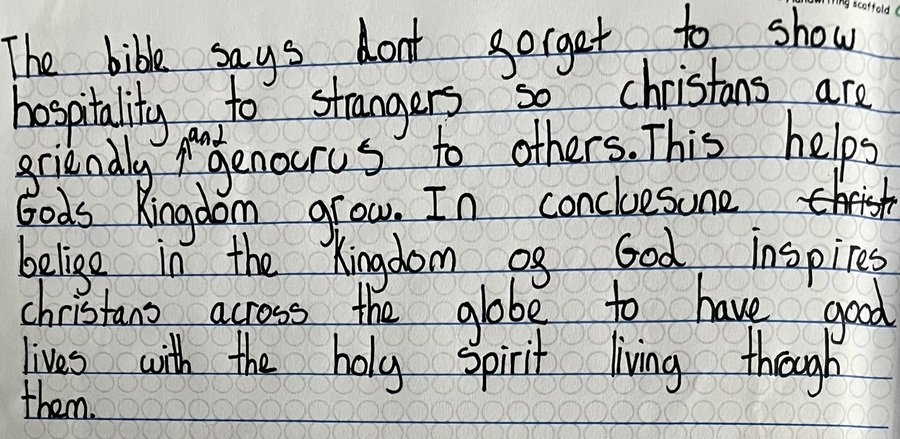 handwriting scaffold
The bible says dont forget to show
hospitality to strangers so christans are
friendly and genocrus to others. This helps
Gods Kingdom grow. In concluesune christ
belife in the Kingdom of God inspires
christans across the globe to have good
lives with the holy spirit living through
them.